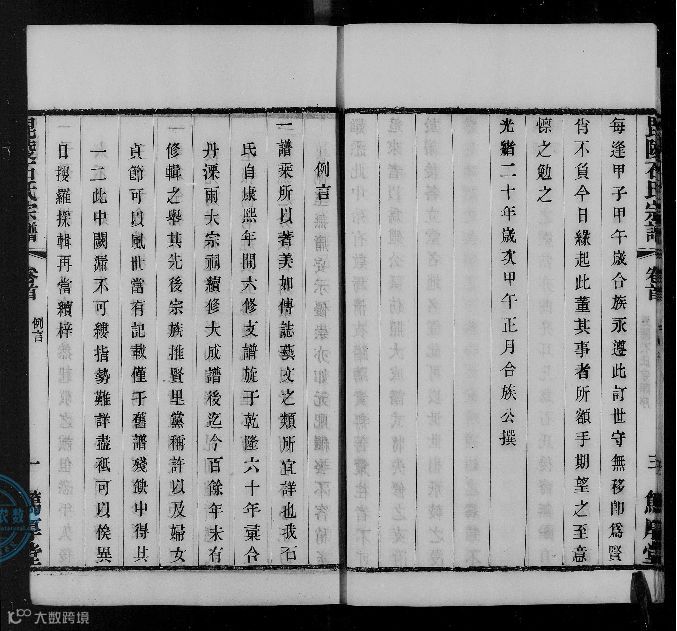 每逢甲子甲午歲合族永遵此訂世守無移卽爲賢
肖不負今日緣起此董其事者所額手期望之至意
懔之勉之
光緒二十年歲次甲午正月合族公撰
三
例言
一譜乘所以著美如傳誌藝文之類所宜詳也我石
氏自康熙年間六修支譜旋于乾隆六十年彙合
丹溧兩大宗祠續修大成譜後迄今百餘年未有
修輯之舉其先後宗族推賢里黨稱許以及婦女
貞節可以風世當有記載僅于舊譜殘缺中得其
一二此中闕漏不可縷指勢難詳盡祗可以俟異
日搜羅採輯再當續梓
毘陵石氏宗譜
卷首
例言
一
篤厚堂
大数跨境